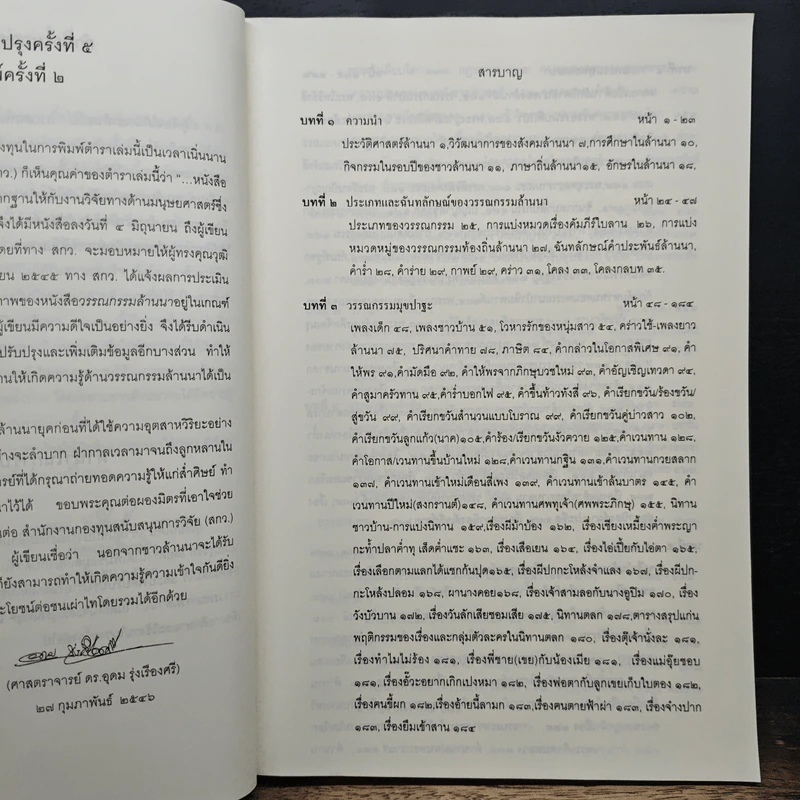 ปรุงครั้งที่ ๕
ครั้งที่ ๒
ทุนในการพิมพ์ตำราเล่มนี้เป็นเวลาเนิ่นนาน
ก็เห็นคุณค่าของตำราเล่มนี้ว่า "...หนังสือ
กฐานให้กับงานวิจัยทางด้านมนุษยศาสตร์ซึ่ง
จึงได้มีหนังสือลงวันที่ ๔ มิถุนายน ถึงผู้เขียน
ดยที่ทาง สกว. จะมอบหมายให้ผู้ทรงคุณวุฒิ
ยน ๒๕๔๕ ทาง สกว. ได้แจ้งผลการประเมิน
ภาพของหนังสือวรรณกรรมล้านนาอยู่ในเกณฑ์
ผู้เขียนมีความดีใจเป็นอย่างยิ่ง จึงได้รีบดำเนิน
ปรับปรุงและเพิ่มเติมข้อมูลอีกบางส่วน ทำให้
านให้เกิดความรู้ด้านวรรณกรรมล้านนาได้เป็น
ล้านนายุคก่อนที่ได้ใช้ความอุตสาหวิริยะอย่าง
างจะลำบาก ฝ่ากาลเวลามาจนถึงลูกหลานใน
รย์ที่ได้กรุณาถ่ายทอดความรู้ให้แก่ล่ำศิษย์ ทำ
นาไว้ได้ ขอบพระคุณต่อผองมิตรที่เอาใจช่วย
นต่อ สำนักงานกองทุนสนับสนุนการวิจัย (สกว.)
ผู้เขียนเชื่อว่า นอกจากชาวล้านนาจะได้รับ
ก็ยังสามารถทำให้เกิดความรู้ความเข้าใจกันดียิ่ง
ะโยชน์ต่อชนเผ่าไทโดยรวมได้อีกด้วย
(ศาสตราจารย์ ดร.อุดม รุ่งเรืองศรี)
๒๗ กุมภาพันธ์ ๒๕๔๖
สารบาญ
บทที่ ๑ ความนำ หน้า ๑ - ๒๓
ประวัติศาสตร์ล้านนา ๑,วิวัฒนาการของสังคมล้านนา ๗,การศึกษาในล้านนา ๑๐,
กิจกรรมในรอบปีของชาวล้านนา ๑๑, ภาษาถิ่นล้านนา๑๕, อักษรในล้านนา ๑๘,
บทที่ ๒ ประเภทและฉันทลักษณ์ของวรรณกรรมล้านนา หน้า ๒๔ - ๔๗
ประเภทของวรรณกรรม ๒๕, การแบ่งหมวดเรื่องคัมภีร์ใบลาน ๒๖, การแบ่ง
หมวดหมู่ของวรรณกรรมท้องถิ่นล้านนา ๒๗, ฉันทลักษณ์คำประพันธ์ล้านนา,
คำร่ำ ๒๘, คำร่าย ๒๙, กาพย์ ๒๙, คร่าว ๓๑, โคลง ๓๓, โคลงกลบท ๓๕.
บทที่ ๓ วรรณกรรมมุขปาฐะ หน้า ๔๘ - ๑๘๔
เพลงเด็ก ๔๘, เพลงชาวบ้าน ๕๑, โวหารรักของหนุ่มสาว ๕๔, คร่าวใช้-เพลงยาว
ล้านนา ๗๕, ปริศนาคำทาย ๗๘, ภาษิต ๘๔, คำกล่าวในโอกาสพิเศษ ๙๑, คำ
ให้พร ๙๑,คำมัดมือ ๙๒, คำให้พรจากภิกษุบวชใหม่ ๙๓, คำอัญเชิญเทวดา ๙๔,
คำสูมาครัวทาน ๙๕,คำร่ำบอกไฟ ๙๕, คำขึ้นท้าวทังสี่ ๙๖, คำเรียกขวัญ/ร้องขวัญ/
สู่ขวัน ๙๙, คำเรียกขวัญสำนวนแบบโบราณ ๙๙, คำเรียกขวัญคู่บ่าวสาว ๑๐๒,
คำเรียกขวัญลูกแก้ว(นาค)๑๐๕,คำร้อง/เรียกขวัญงัวควาย ๑๒๕,คำเวนทาน ๑๒๘,
คำโอกาส/เวนทานขึ้นบ้านใหม่ ๑๒๘,คำเวนทานกฐิน ๑๓๑,คำเวนทานกวยสลาก
๑๓๗, คำเวนทานเข้าใหม่เดือนสี่เพง ๑๓๙, คำเวนทานเข้าล้นบาตร ๑๔๕, คำ
เวนทานปีใหม่(สงกรานต์)๑๔๘,คำเวนทานศพทุเจ้า(ศพพระภิกษุ) ๑๕๕, นิทาน
ชาวบ้าน-การแบ่งนิทาน ๑๕๙,เรื่องผีม้าบ้อง ๑๖๒, เรื่องเชียงเหมี้ยงค่ำพระญา
กะท้ำปลาค่ำทุ เสิดค่ำแชะ ๑๖๓, เรื่องเสือเยน ๑๖๔, เรื่องไอ่เปี้ยกับไอ่ตา ๑๖๕,
เรื่องเลือกตามแลกได้แชกกันปุด๑๖๕, เรื่องผีปกกะโหล้งจำแลง ๑๖๗, เรื่องผีปก-
กะโหล้งปลอม ๑๖๘, ผานางคอย๑๖๘, เรื่องเจ้าสามลอกับนางอูปิม ๑๗๐, เรื่อง
วังบัวบาน ๑๗๒, เรื่องวันลักเสียชอมเสีย ๑๗๕, นิทานตลก ๑๗๘,ตารางสรุปแก่น
พฤติกรรมของเรื่องและกลุ่มตัวละครในนิทานตลก ๑๘๐, เรื่องตุ๊เจ้านั่งละ ๑๘๑,
เรื่องทำไมไม่ร้อง ๑๘๑, เรื่องพี่ชาย(เขย)กับน้องเมีย ๑๘๑, เรื่องแม่อุ๊ยชอบ
๑๘๑, เรื่องอั๊วะอยากเกิกเปงหมา ๑๘๒, เรื่องพ่อตากับลูกเขยเก็บใบตอง ๑๘๒,
เรื่องคนขี้ผก ๑๘๒,เรื่องอ้ายนี้ลามก ๑๘๓,เรื่องคนตายฟ้าผ่า ๑๘๓, เรื่องจ่างปาก
๑๘๓, เรื่องยืมเข้าสาน ๑๘๔